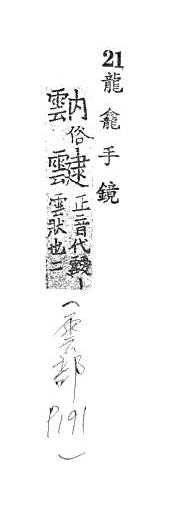 21 龍龕手鏡
俗靆正音代靉丨
雲狀也二
(雲部 P191)